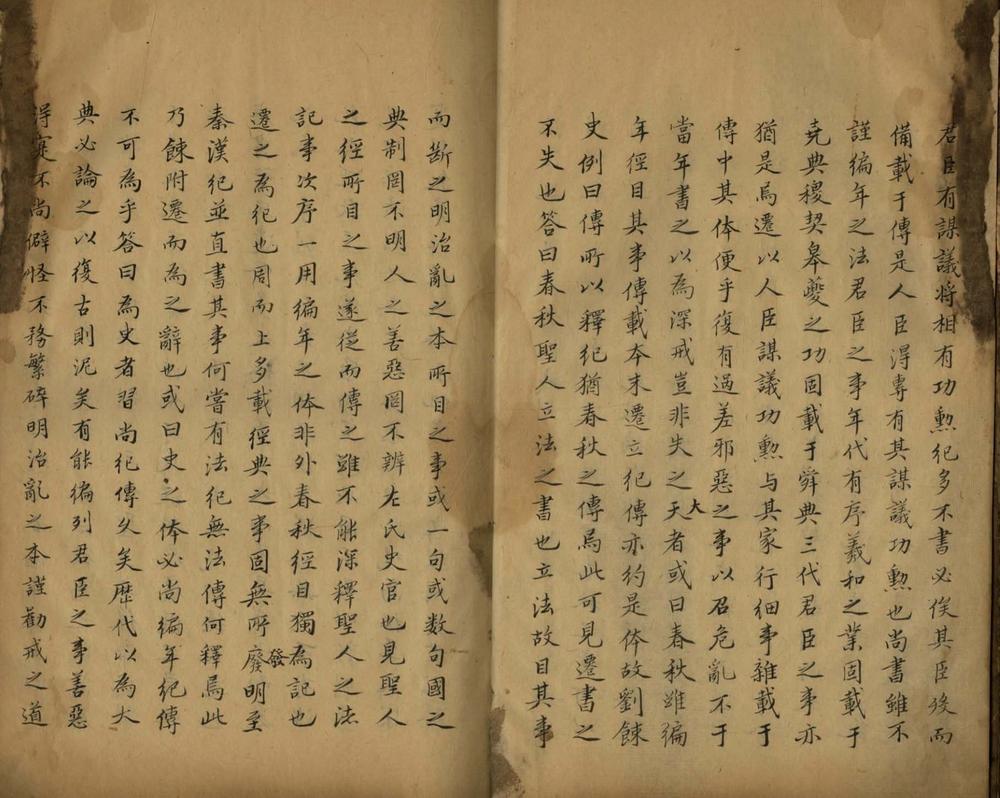 君臣有謀議將相有功勲紀多不書必俟其臣歿而
備載于傳是人臣淂專有其謀議功勲也尚書雖不
謹編年之法君臣之事年代有序羲和之業固載于
堯典稷契皋夔之功固載于舜典三代君臣之事亦
猶是焉遷以人臣謀議功勲与其家行細事雜載于
傳中其体便乎復有過差邪惡之事以召危亂不于
當年書之以為深戒豈非失之天大者或曰春秋雖編
年徑目其事傳載夲末遷立纪傳亦約是体故劉餗
史例曰傳所以釋紀猶春秋之傳焉此可見遷書之
不失也答曰春秋聖人立法之書也立法故目其事
而断之明治亂之本所目之事或一句或数句國之
典制罔不明人之善惡罔不辨左氏史官也見聖人
之經所目之事遂從而傳之雖不能深釋聖人之法
記事次序一用編年之体非外春秋經目獨為記也
遷之為紀也周而上多載經典之事固無所廢發明至
秦漢纪並直書其事何嘗有法纪無法傳何釋焉此
乃餗附遷而為之辭也或曰史之体必尚編年纪傳
不可為乎答曰為史者習尚纪傳久矣歷代以為大
典必論之以復古則泥矣有能编列君臣之事善惡
得寔不尚僻怪不務繁碎明治亂之本謹勸戒之道